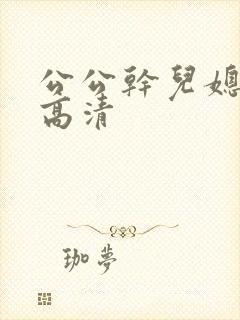 公公幹兒媳
高清
珈夢